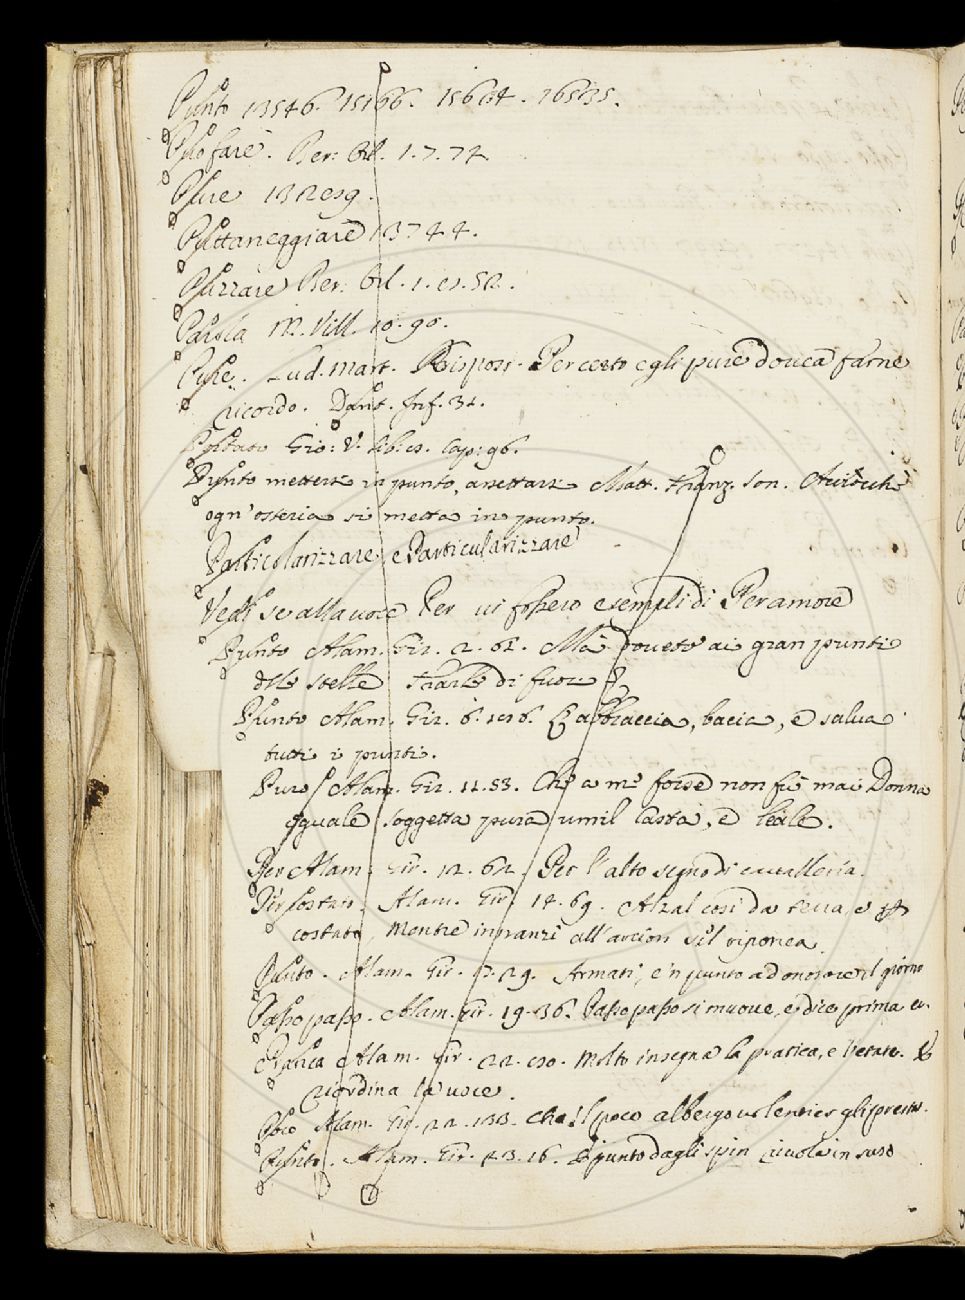 Punto 13546. 15166. 15604. 16535.
Profare. Ber: Orl. 1.7.72
Pure
Puttaneggiare 13744.
Puzzare Ber: Orl. 1. 52.
Parsia M. Vill. 10.90.
Pure. Lud. Mart. Rispost. Per certo egli pure dovea farne
ricordo. Dant. Inf. 31.
Gio: V. lib: cap: 96.
Punto mettere in punto, assettare Matt. Franz. son.
ogn'osteria si metta in punto.
Particolarizzare, e Particularizzare
Vedi se alla voce Per vi fossero esempli di Per amore
Punto Alam. Gir. 2. 61. Ma dovete ai gran punti
delle stelle trarle di fuor
Punto Alam. Gir. 6. abbraccia, bacia, e salva
tutti i punti.
Puro Alam. Gir. 11.53. Che a me forse non fu mai Donna
eguale soggetta pura umil casta, e leale.
Per Alam. Gir. 12. 62 Per l'alto segno di cavalleria.
Alam. Gir. 14. 69. Alzal così da terra, e
costato, Mentre innanzi all'arcion sel riponea.
Punto. Alam. Gir. 29. Armati, e'n punto ad onorare il giorno
Passo passo. Alam. Gir. 19.36. Passo passo si muove, e dice prima
Pratica Alam. Gir. 22. Molto insegna la pratica, e l'etate.
riordina la voce.
Poco Alam. Gir. 22. 133. Che il poco albergo volentier gli presta.
Punto. Alam. Gir. 23. 16. E punto dagli spin rivola in suso